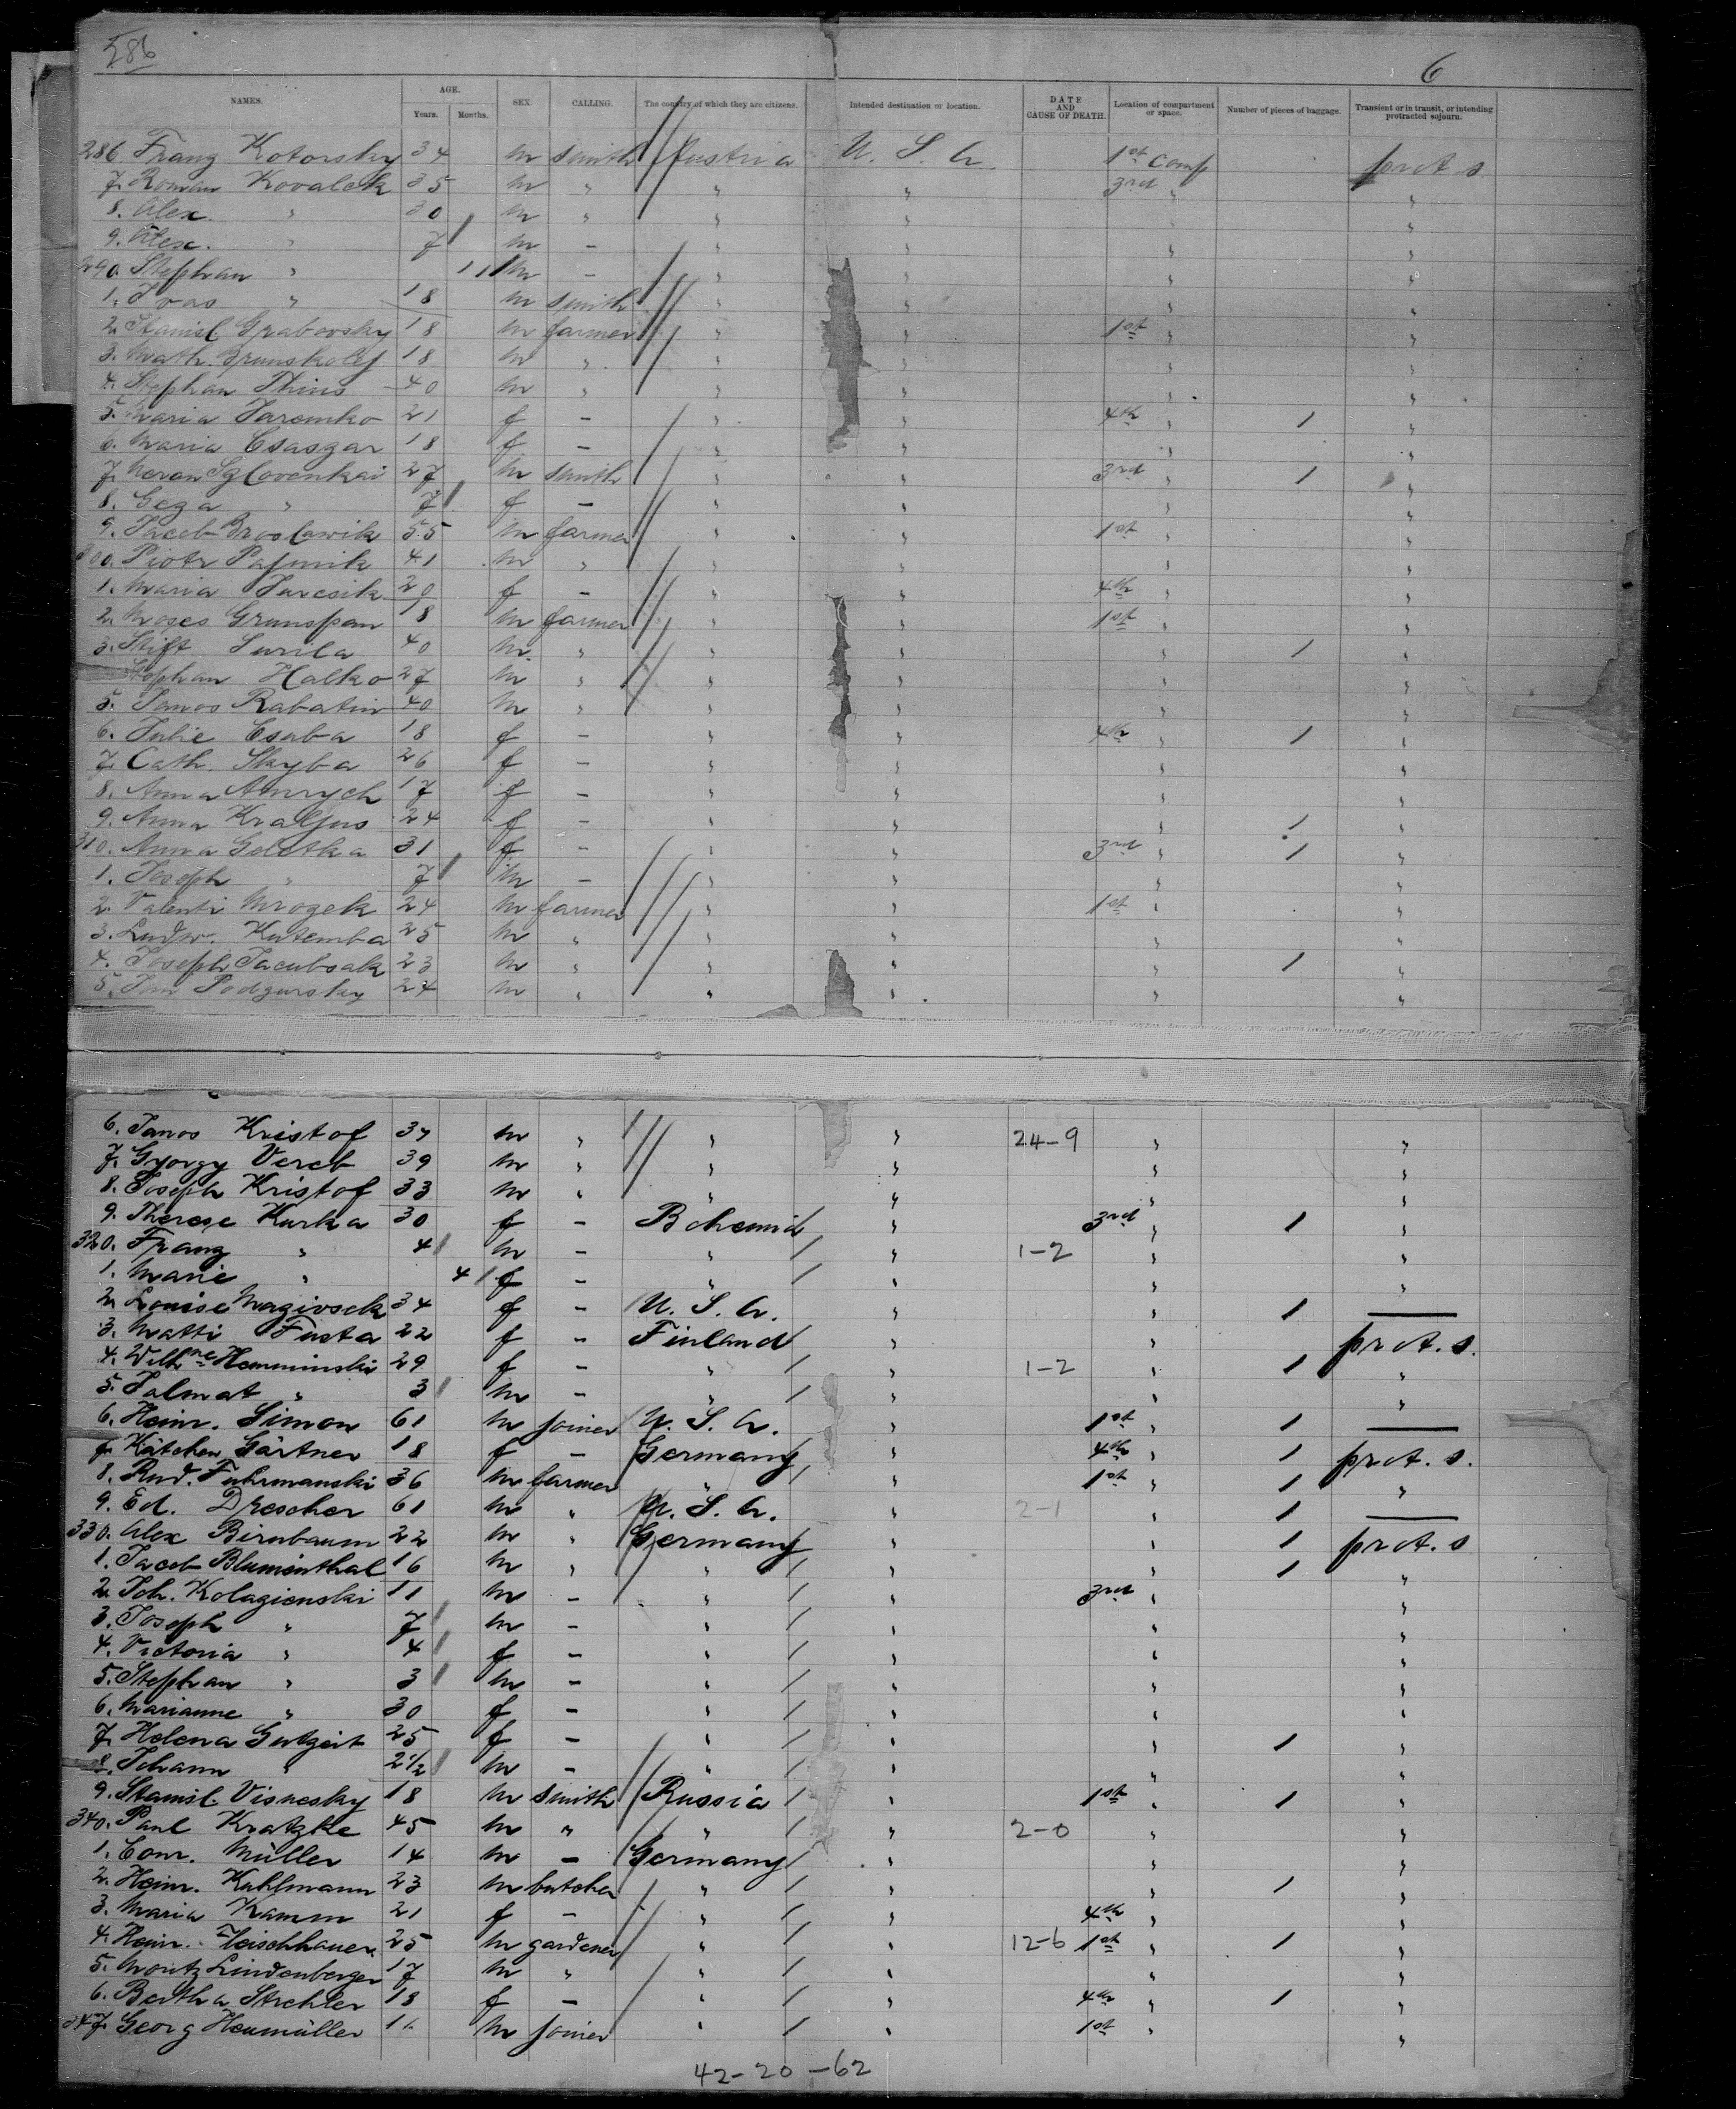 286
6
NAMES. AGE. Years. Months. SEX. CALLING. The country of which they are citizens. Intended destination or location. DATE AND CAUSE OF DEATH. Location of compartment or space. Number of pieces of baggage. Transient or in transit, or intending protracted sojourn.
286. Franz Kotorsky 34 m smith Austria U. S. A. 1st comp prot s
7. Roman Kovalek 35 m " " " 3rd " "
8. Alex. " 30 m " " " " "
9. Alex. " 7 m - " " " "
290. Stephan " 11 m - " " " "
1. Ivas " 18 m smith " " " "
2. Stanisl. Grabovsky 18 m farmer " " 1st " "
3. Math. Grunskolej 18 m " " " " "
4. Stephan Thins 40 m " " " " "
5. Maria Jaremko 21 f - " " 4th " 1 "
6. Maria Csaszar 18 f - " " " "
7. Moran Szlovenkai 27 m smith " " 3rd " 1 "
8. Geza " 7 f - " " " "
9. Jacob Broslawik 55 m farmer " " 1st " "
300. Piotr Pajmik 41 m " " " " "
1. Maria Jurcsik 20 f - " " 4th " "
2. Moses Grunspan 18 m farmer " " 1st " "
3. Stift Surila 40 m " " " " 1 "
Stephan Halko 27 m " " " " "
5. Janos Rabatin 40 m " " " " "
6. Julie Csuba 18 f - " " 4th " 1 "
7. Cath. Skyba 26 f - " " " "
8. Anna Amrych 17 f - " " " "
9. Anna Kraljus 24 f - " " " 1 "
310. Anna Goletka 31 f - " " 3rd " 1 "
1. Joseph " 7 m - " " " "
2. Valenti Mrozek 24 m farmer " " 1st " "
3. Ludw. Kutemba 25 m " " " " "
4. Joseph Jacubsak 23 m " " " " 1 "
5. Jan Podgursky 24 m " " " " "
6. Janos Kristof 37 m " " " 24-9 " "
7. Gyorgy Vereb 39 m " " " " "
8. Joseph Kristof 33 m " " " " "
9. Therese Kurka 30 f - Bohemia " 3rd " 1 "
320. Franz " 4 m - " " 1-2 " "
1. Marie " 4 f - " " " "
2. Louise Nagivsek 34 f - U. S. A. " " 1 -
3. Matti Fusta 22 f - Finland " " prot. s.
4. Wilhne Hemminski 29 f - " " 1-2 " 1 "
5. Jalmat " 3 m - " " " "
6. Heinr. Simon 61 m joiner U. S. A. " 1st " 1 -
7. Kätchen Gärtner 18 f - Germany " 4th " 1 prot. s.
8. Rud. Fuhrmanski 36 m farmer " " 1st " 1 "
9. Ed. Drescher 61 m " U. S. A. " 2-1 " 1 -
330. Alex Birnbaum 22 m " Germany " " 1 prot. s
1. Jacob Blumenthal 16 m " " " " 1 "
2. Joh. Kolagienski 11 m - " " 3rd " "
3. Joseph " 7 m - " " " "
4. Victoria " 4 f - " " " "
5. Stephan " 3 m - " " " "
6. Marianne " 30 f - " " " "
7. Helena Gutzeit 25 f - " " " 1 "
8. Johann " 2 1/2 m - " " " "
9. Stanisl. Visnesky 18 m smith Russia " 1st " 1 "
340. Paul Kratzke 45 m " " " 2-0 " "
1. Conr. Müller 14 m - Germany " " "
2. Heinr. Kuhlmann 23 m butcher " " " 1 "
3. Maria Kamm 21 f - " " 4th " "
4. Heinr. Fleischhauer 25 m gardener " " 12-6 1st " 1 "
5. Moritz Lindenberger 17 m " " " " "
6. Bertha Strehler 18 f - " " 4th " 1 "
347. Georg Heumüller m joiner " " 1st " "
42-20-62